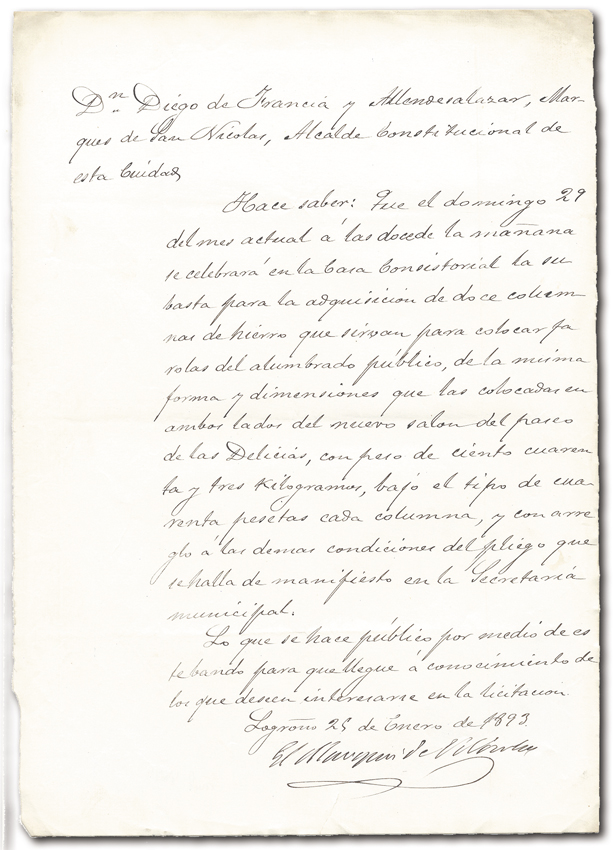 Dn. Diego de Francia y Allendesalazar, Mar-
ques de San Nicolas, Alcalde Constitucional de
esta Ciudad,
Hace saber: Que el domingo 29
del mes actual á las doce de la mañana
se celebrará en la Casa Consistorial la su
basta para la adquisicion de doce colum-
nas de hierro que sirvan para colocar fa
rolas del alumbrado público, de la misma
forma y dimensiones que las colocadas en
ambos lados del nuevo salon del paseo
de las Delicias, con peso de ciento cuaren
ta y tres Kilogramos, bajo el tipo de cua
renta pesetas cada columna, y con arre
glo á las demas condiciones del pliego que
se halla de manifiesto en la Secretaria
municipal.
Lo que se hace público por medio de es
te bando para que llegue á conocimiento de
los que deseen interesarse en la licitacion.
Logroño 25 de Enero de 1893
El Marques de Sn Nicolas